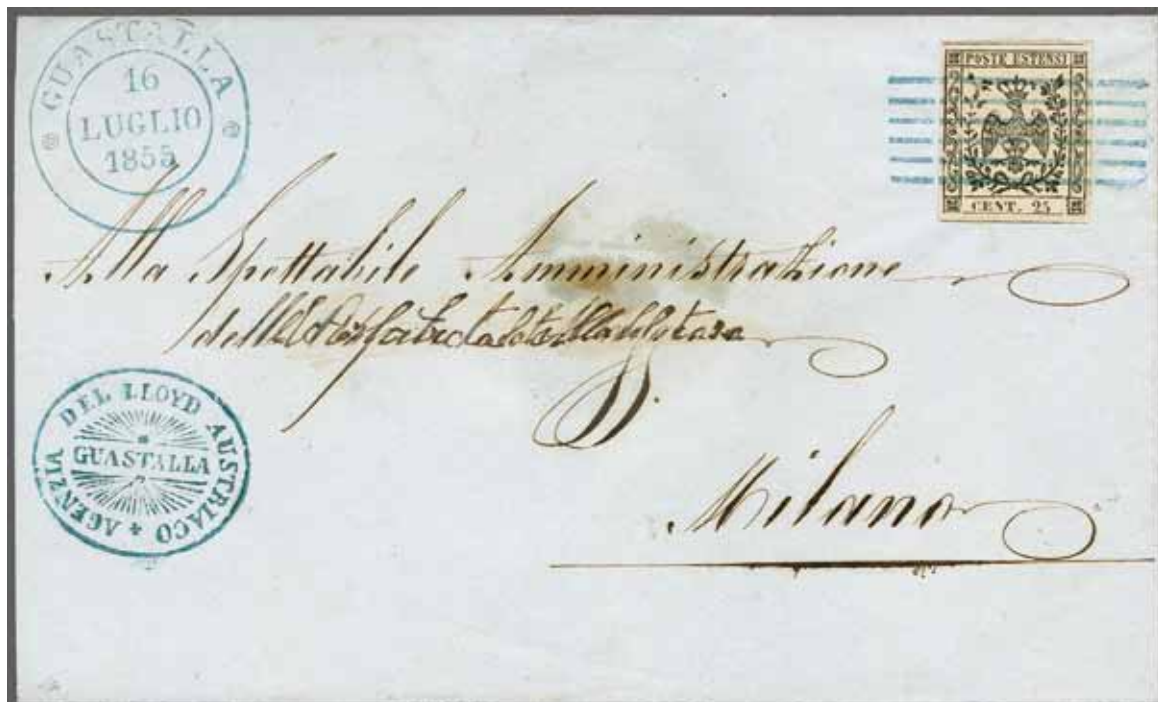 GUASTALLA
16
LUGLIO
1855
POSTE ESTENSI
CENT. 25
Alla Spettabile Amministrazione
Milano
AGENZIA DEL LLOYD AUSTRIACO
GUASTALLA